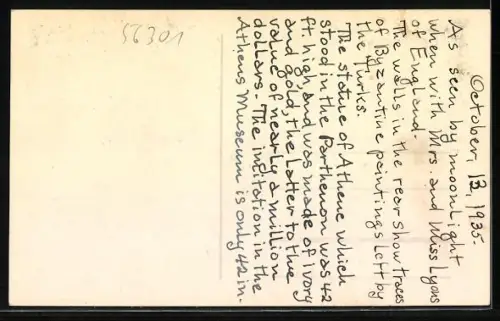 October, 13, 1935.
As seen by moonlight
when with Mrs. and Miss Lyons
of England.
The walls in the rear show traces
of Byzantine paintings left by
the Turks.
The statue of Athene which
stood in the Parthenon was 42
ft. high, and was made of ivory
and gold, the latter to the
value of nearly a million
dollars. The imitation in the
Athens Museum is only 42 in.
56301